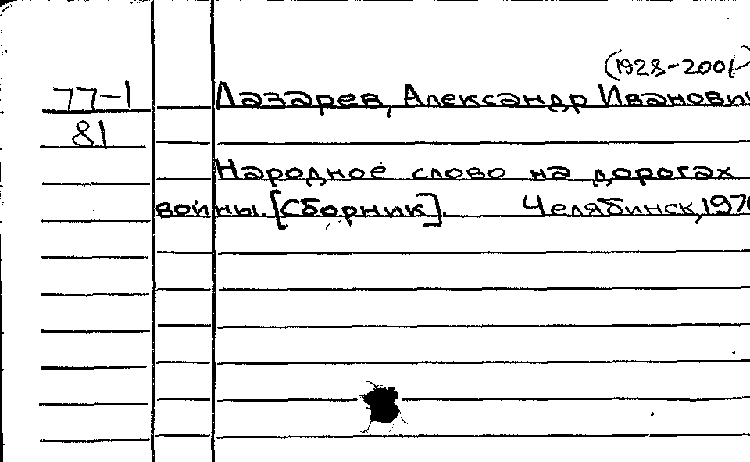 (1928-2001)
77-1 Лазарев, Александр Иванович
81
Народное слово на дорогах
войны. [Сборник]. Челябинск, 197